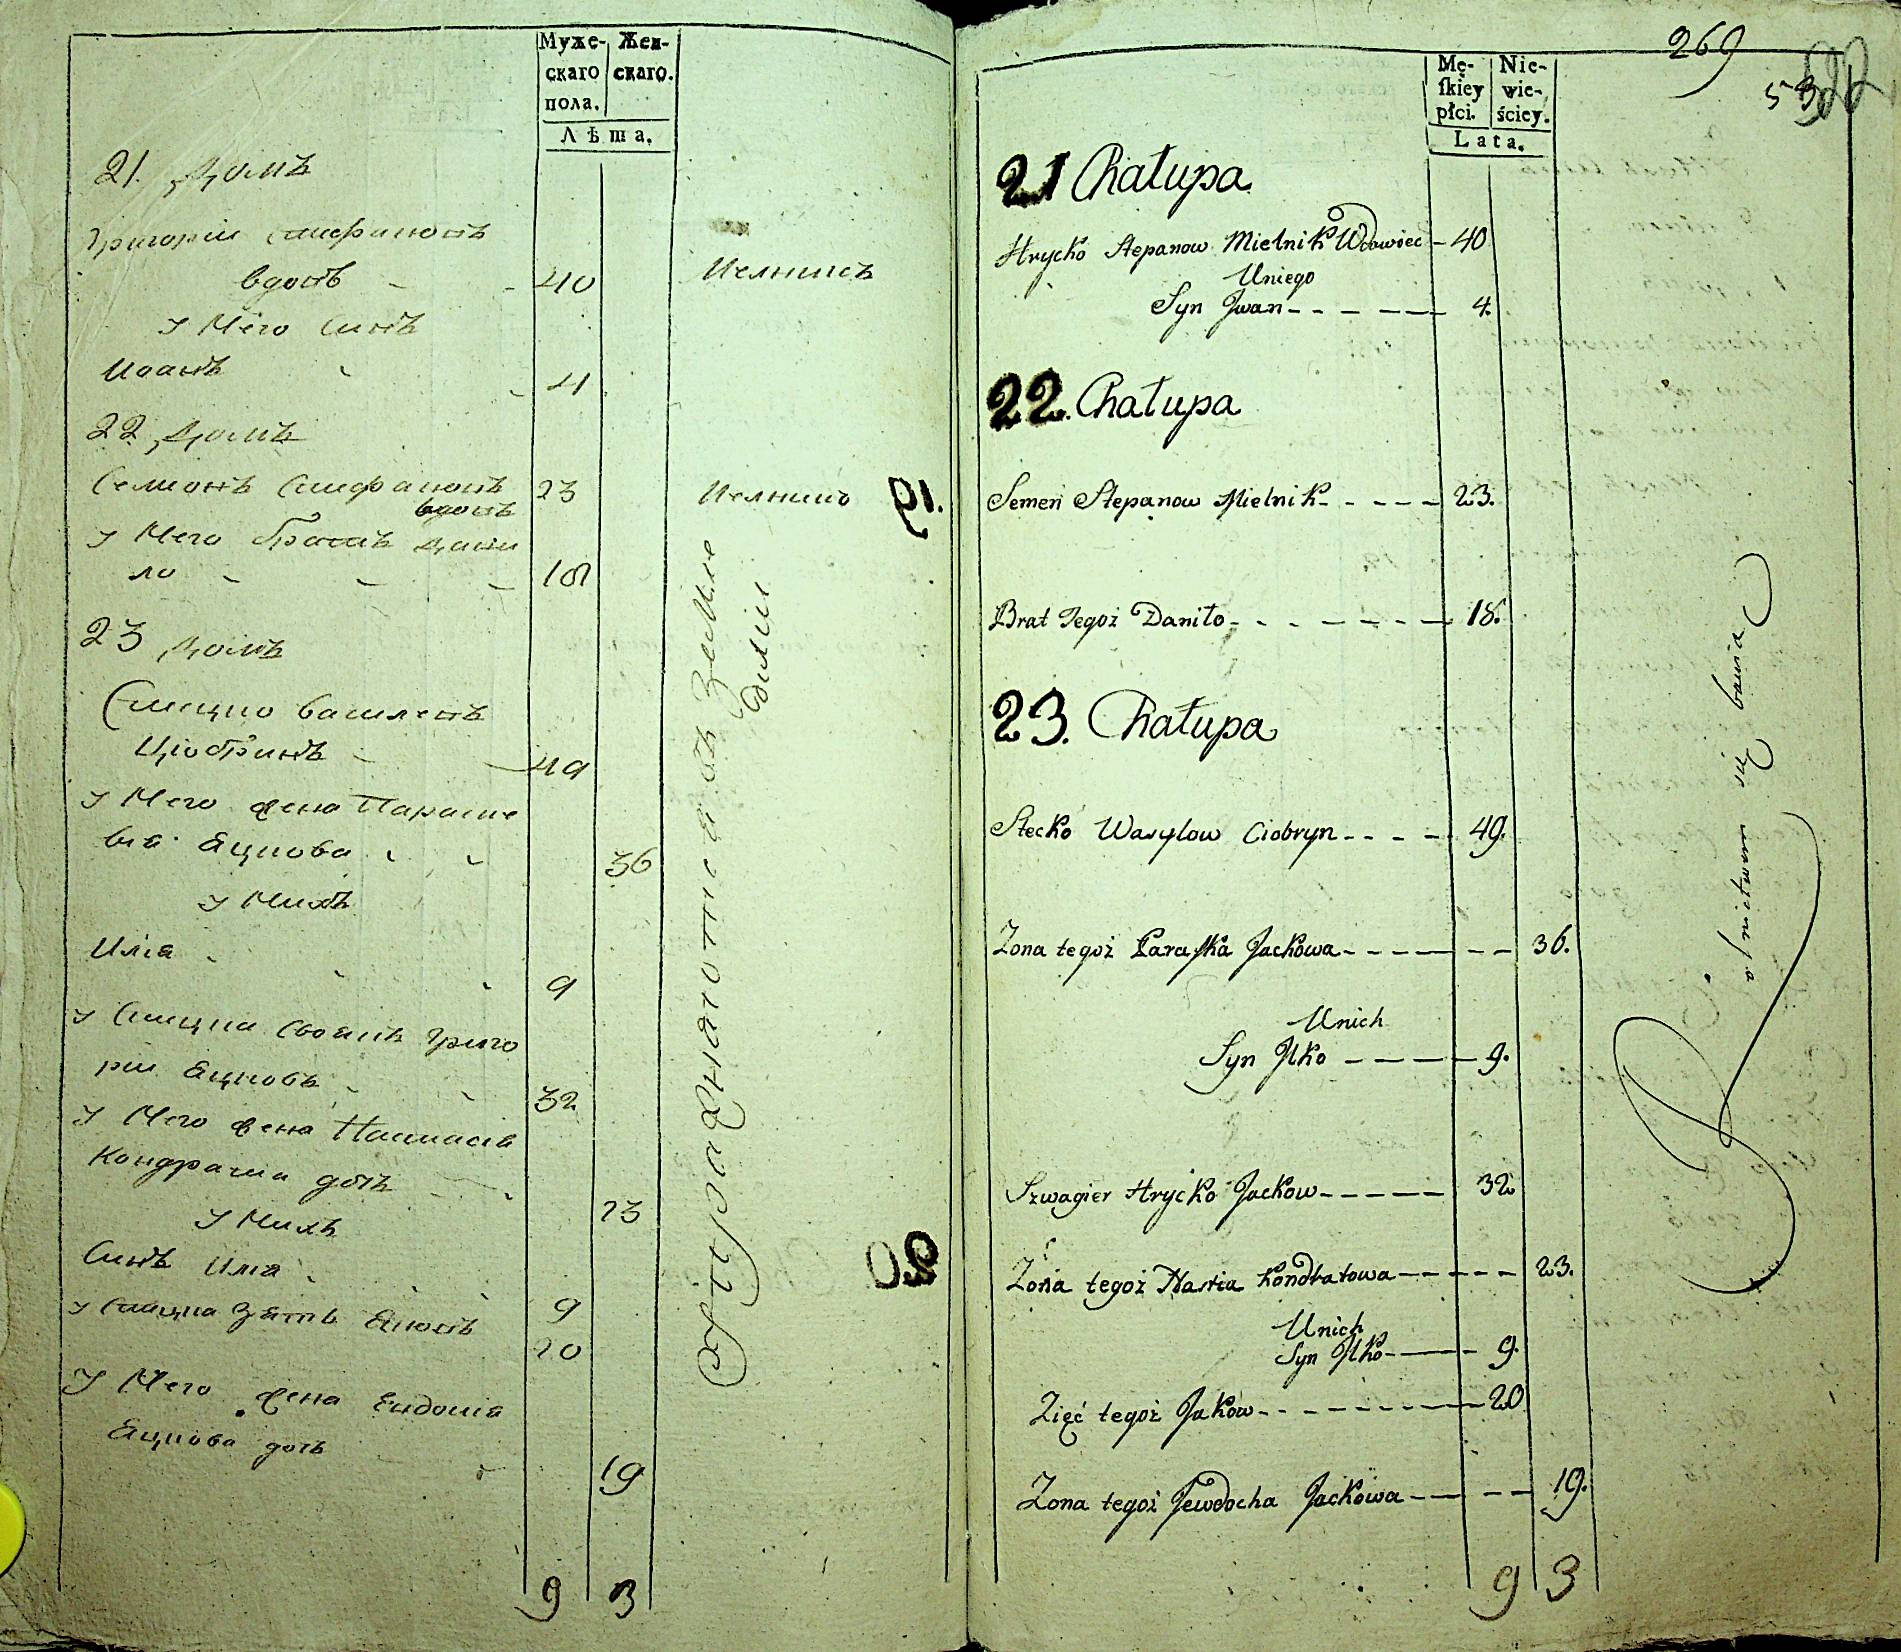 Муже-
скаго
пола.
Жен-
скаго.
Лѣта.
21. Домъ
Григорій Стефановъ
вдовъ - - 40
Мелникъ
У Него Синъ
Иоанъ - 4
22 Домъ
Семионъ Стефановъ 23
вдовъ
Мелникъ
У Него братъ Дани
ло - - - 18
23 Домъ
Стецко Василевъ
Цюбринъ - 49
У Него жена Параске
вія Яцкова 36
У Нихъ
Илія 9
У Стецка своякъ Григо
рій Яцковъ 32
У Него жена Настасія
Кондратиа дочь 23
У Нихъ
Синъ Илія 9
У Стецка Зять Яковъ 20
У Него жена Евдокія
Яцкова дочь 19
9 3
Упражнаются въ Земле
делии
19.
20
269
53
Mę-
ſkiey
płci.
Nie-
wie-
ściey.
Lata.
21 Chałupa
Hrycko Stepanow Mielnik Wdowiec - 40
Uniego
Syn Jwan - - - - - - 4.
22. Chałupa
Semen Stepanow Mielnik - - - - - 23.
Brat Tegoż Daniło - - - - - - - 18.
23. Chałupa
Stecko Wasylow Ciobryn - - - - 49.
Zona tegoż Paraſka Jackowa - - - - - - 36.
Unich
Syn Jlko - - - - - 9.
Szwagier Hrycko Jackow - - - - - 32
Zona tegoż Nastia Kondratowa - - - - - 23.
Unich
Syn Jlko - - - 9.
Zięć tegoż Jakow - - - - - - - - 20
Zona tegoż Jewdocha Jackowa - - - - 19.
9 3
Rolnictwem się bawią